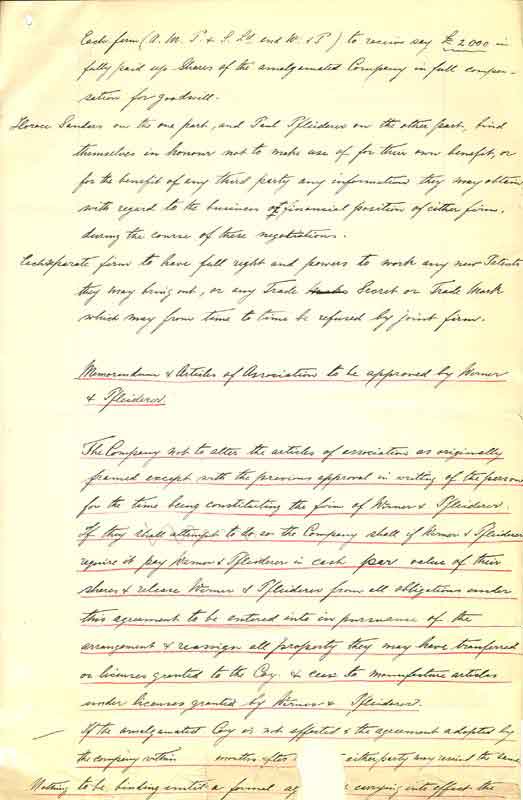 Each firm (A. M. P. & S. Ld. and W. & P.) to receive say £2000 in
fully paid up Shares of the amalgamated Company in full compen-
sation for goodwill.
Horace Sanders on the one part, and Paul Pfleiderer on the other part, bind
themselves in honour not to make use of for their own benefit, or
for the benefit of any third party any information they may obtain
with regard to the business or financial position of either firm.
during the course of these negotiations.
Each separate firm to have full right and powers to work any new Patents
they may bring out, or any Trade Secret or Trade Mark
which may from time to time be refused by joint firm.
Memorandum & Articles of Association to be approved by Werner
& Pfleiderer
The Company not to alter the articles of association as originally
framed except with the previous approval in writing of the persons
for the time being constituting the firm of Werner & Pfleiderer.
If they shall attempt to do so the Company shall if Werner & Pfleiderer
require it pay Werner & Pfleiderer in cash par value of their
shares & release Werner & Pfleiderer from all obligations under
this agreement to be entered into in pursuance of the
arrangement & reassign all property they may have transferred
or licenses granted to the Coy. & cease to manufacture articles
under licenses granted by Werner & Pfleiderer.
If the amalgamated Coy is not effected & the agreement adopted by
the company within months after either party may rescind the same
Nothing to be binding until a formal carrying into effect the